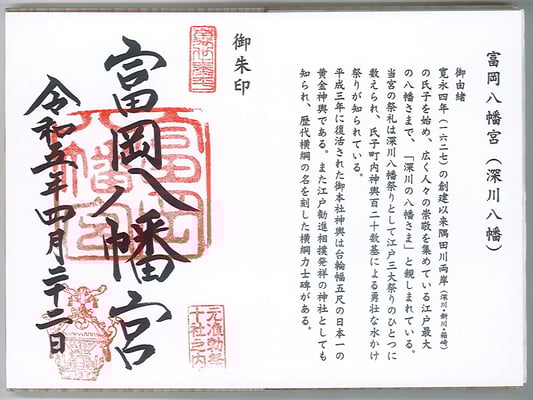 富岡八幡宮（深川八幡）
御由緒
寛永四年（一六二七）の創建以来隅田川両岸（深川・新川・箱崎）
の氏子を始め、広く人々の崇敬を集めている江戸最大
の八幡さまで、「深川の八幡さま」と親しまれている。
当宮の祭礼は深川八幡祭りとして江戸三大祭りのひとつに
数えられ、氏子町内神輿百二十数基による勇壮な水かけ
祭りが知られている。
平成三年に復活された御本社神輿は台輪幅五尺の日本一の
黄金神輿である。また江戸勧進相撲発祥の神社としても
知られ、歴代横綱の名を刻した横綱力士碑がある。
御朱印
富岡八幡宮
元准勅祭
十社之内
令和五年四月二十二日